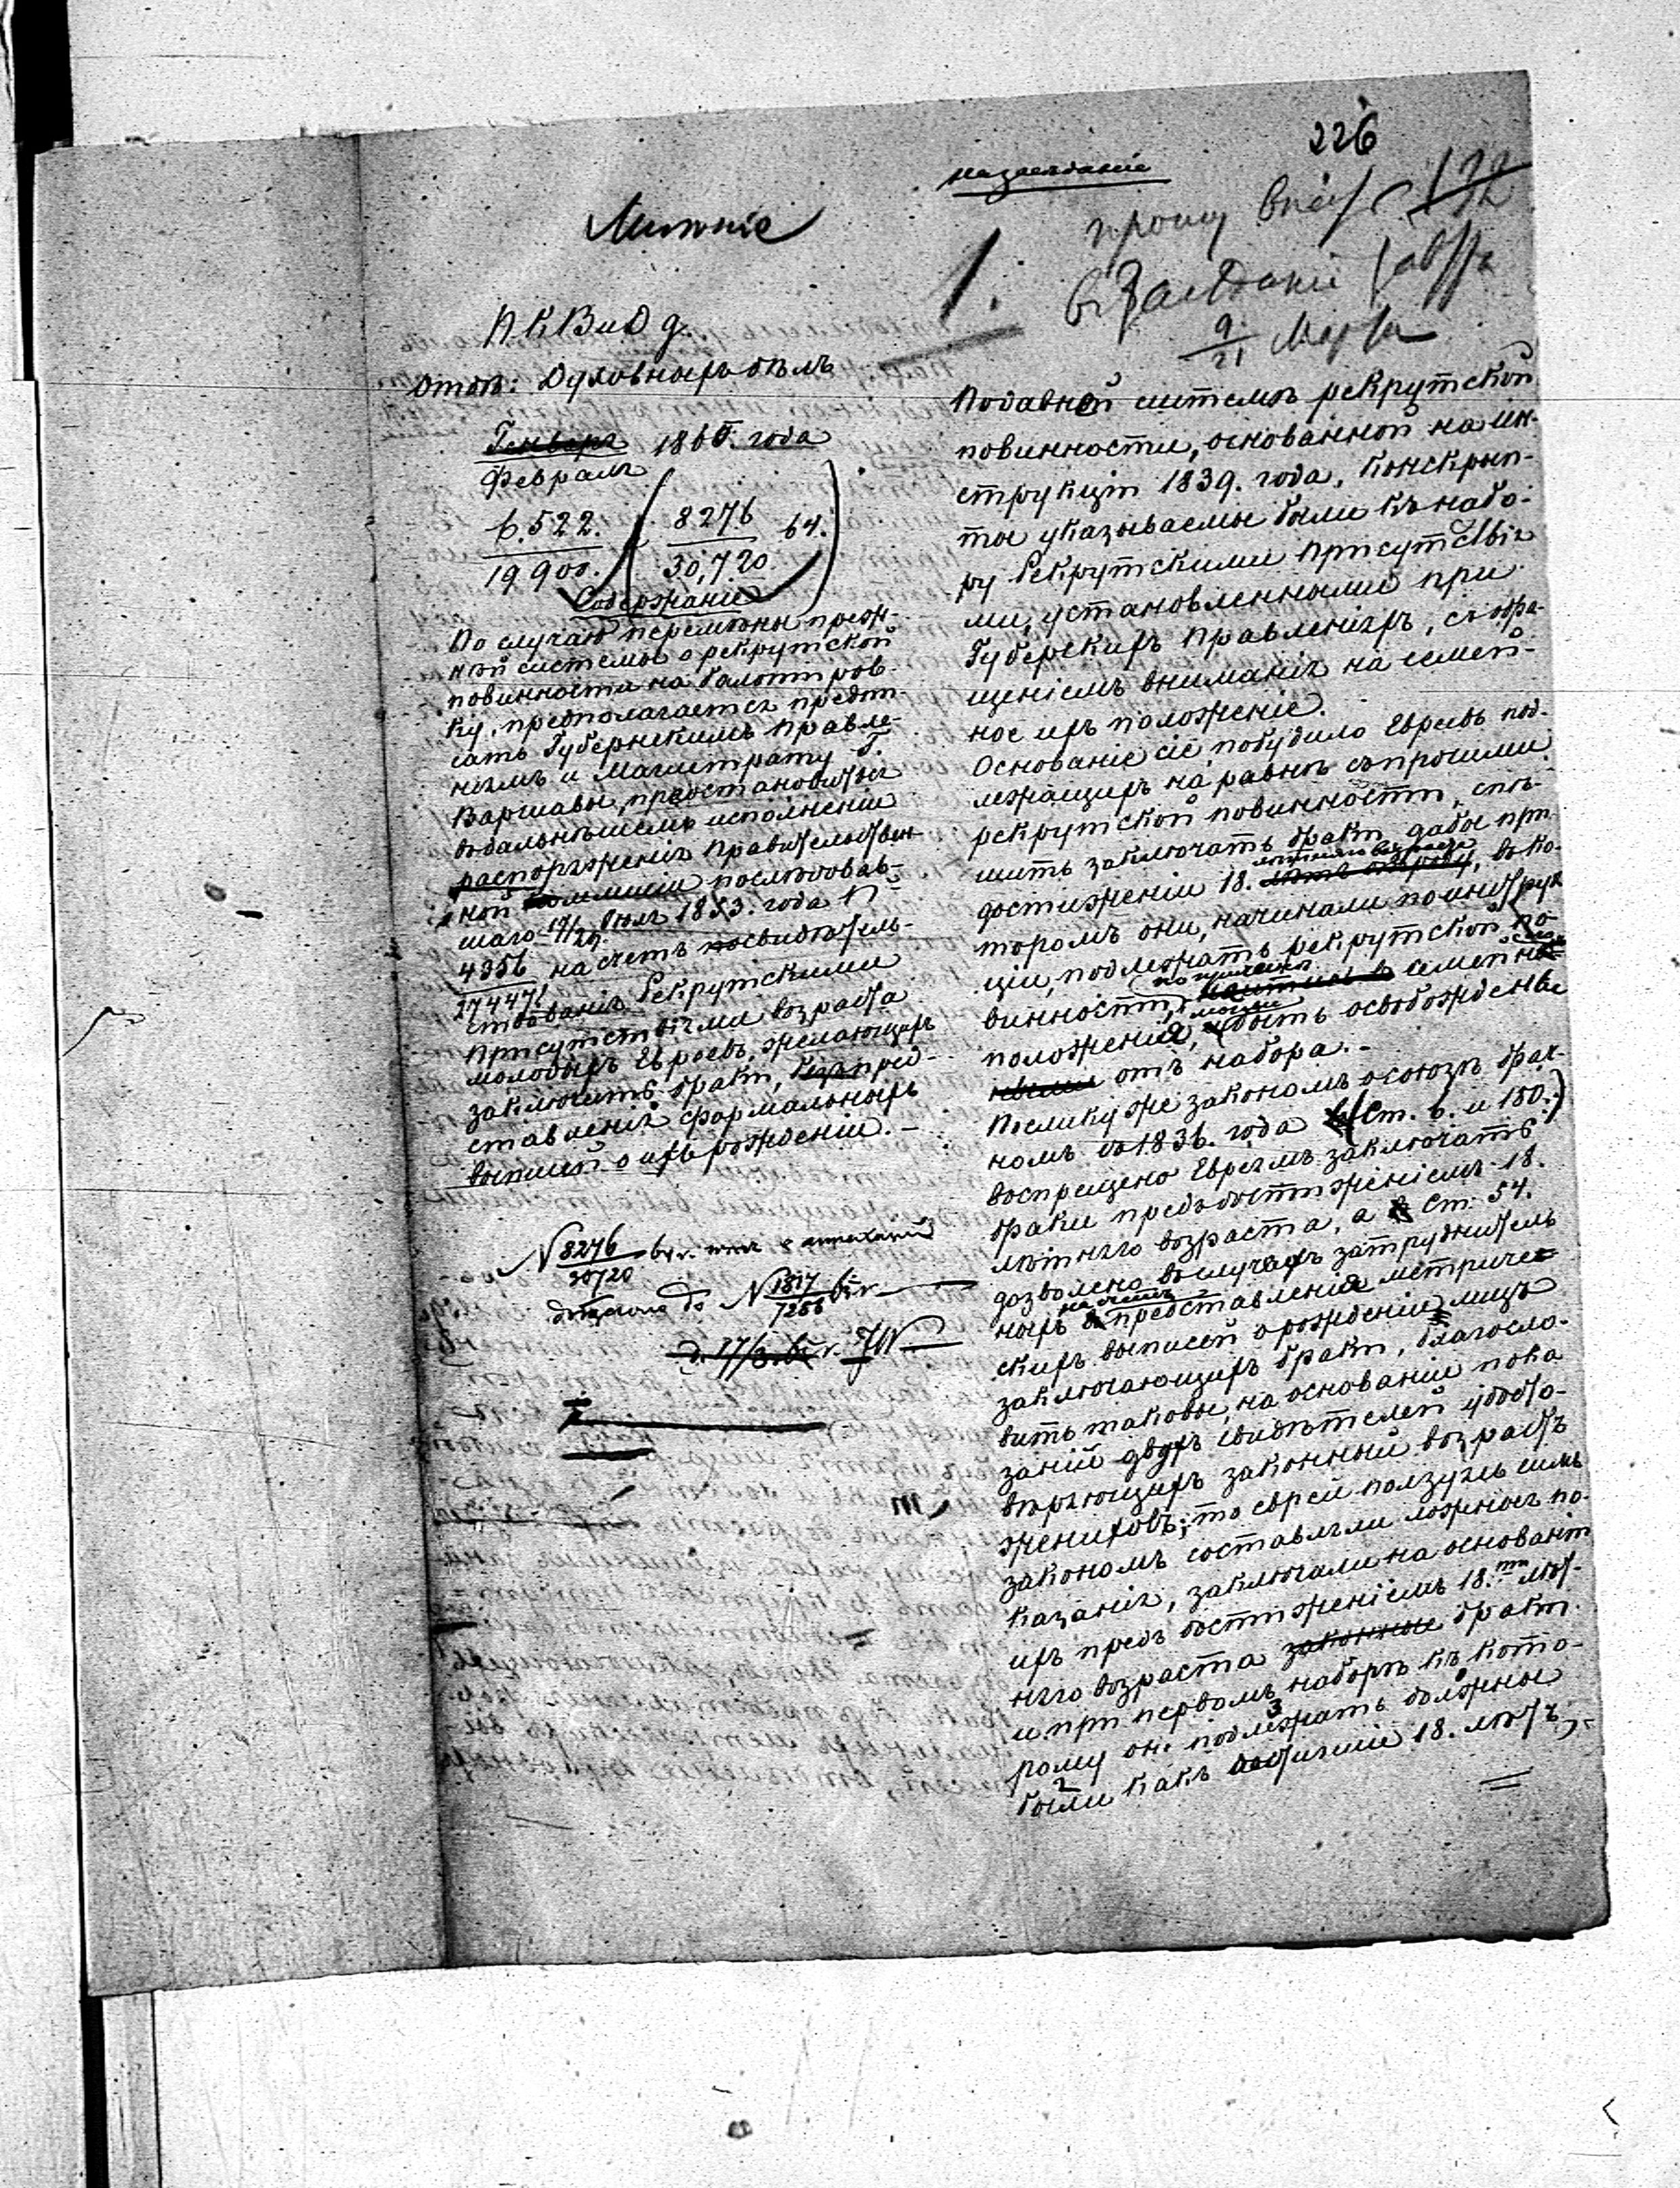 226
на засѣданіе
Мнѣніе
1.
прошу внести
въ Засѣданіи
9/21 Марта
П. К. В. и Д. д.
Отдѣ: Духовныхъ дѣлъ
Генваря 186 . года
Февраля
6.522. 8276 64.
19900. 30,720.
Содержаніе
По случаю перемѣны преж-
ней системы о рекрутской
повинности на балотиров-
ку, предполагается предпи-
сать Губернскимъ Правле-
ніямъ и Магистрату Г.
Варшавы, пріостановиться
въ дальнѣйшемъ исполненіи
распоряженія Правительствен-
ной Коммисіи послѣдовав-
шаго 17/29 Іюля 1853. года N
4356 на счетъ освидѣтель-
27447
ствованія Рекрутскими
Присутствіями возраста
молодыхъ Евреевъ, желающихъ
заключить бракъ, безъ пред-
ставленія формальныхъ
выписей о ихъ рожденіи. –
N 8276
30720
do N 1817
7256
По давней системѣ рекрутской
повинности, основанной на Ин-
струкціи 1839. года, Конскрип-
ты указываемы были къ набо-
ру Рекрутскими Присутствія-
ми, установленными при
Губерскихъ Правленіяхъ, съ обра-
щеніемъ вниманія на семей-
ное ихъ положеніе.
Основаніе сіе побудило Евреевъ под-
лежащихъ на равнѣ съ прочими
рекрутской повинности, спѣ-
шить заключать бракъ, дабы при
достиженіи 18. лѣтняго возраста, въ ко-
торомъ они, начинали по инструк-
ціи, подлежать рекрутской по-
винности, по причинѣ семейнаго
положенія, могли быть освобождены
отъ набора. –
Поелику же закономъ о союзѣ брач-
номъ съ 1836. года (Ст. 6. и 180.)
воспрещено Евреямъ заключать
браки предъ достиженіемъ 18.
лѣтняго возраста, а Ст. 54.
дозволено въ случаяхъ затруднитель
ныхъ представленія метричес-
кихъ выписей о рожденіи лицъ
заключающихъ бракъ, благосло-
вить таковые, на основаніи пока
заній двухъ свидѣтелей удосто-
вѣряющихъ законный возрастъ
жениховъ; то евреи пользуясь симъ
закономъ составляли ложныя по-
казанія, заключали на основаніи
ихъ предъ достиженіемъ 18.ти лѣт-
няго возраста законные бракъ.
и при первомъ наборѣ къ кото-
рому они подлежать должны
были какъ достигшіе 18. лѣтъ,